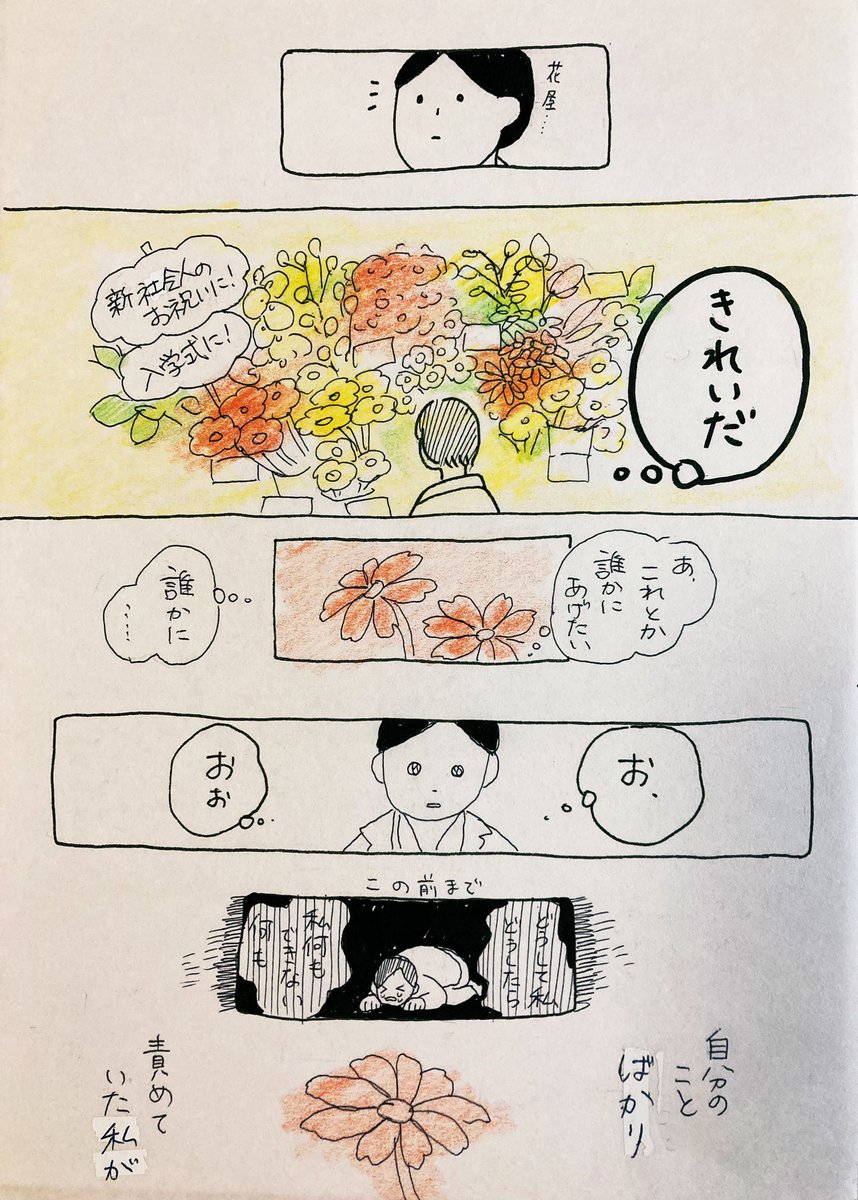 花屋……
新社会人の
お祝いに!
入学式に!
きれいだ
あ、
これとか
誰かに
あげたい
誰かに
……
お、
おぉ
この前まで
どうして私、
どうしたら
私何も
できない
何も
自分の
こと
ばかり
責めて
いた私が